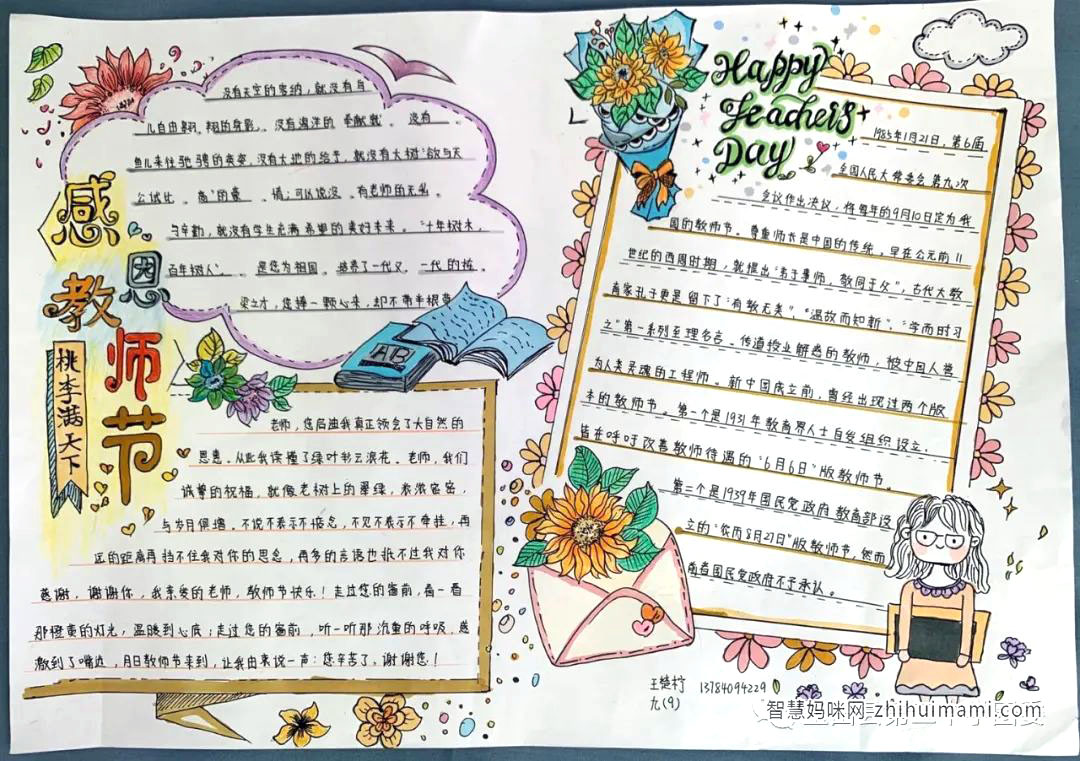 感恩教师节
桃李满天下
没有天空的宽纳，就没有鸟
儿自由翱翔的身影。没有海洋的奉献就没有
鱼儿来往驰骋的姿态，没有大地的给予，就没有大树“欲与天
公试比高”的豪情；可以说没有老师的无私
与辛勤，就没有学生充满希望的美好未来。“十年树木，
百年树人”，是您为祖国培养了一代又一代的栋
梁之才，您捧一颗心来，却不带半根草
AB
老师，您启迪我真正领会了大自然的
思惠。从此我读懂了绿叶书云浪花。老师，我们
诚挚的祝福，就像老树上的翠绿，浓浓密密，
与岁月俱增。不说不表示不惦念，不见不表示不牵挂，再
远的距离再挡不住我对你的思念，再多的言语也抵不过我对你
感谢，谢谢你，我亲爱的老师，教师节快乐！走过您的窗前，看一看
那橙黄的灯光，温暖到心底；走过您的窗前，听一听那沉重的呼吸，感
激到了嘴边，月日教师节来到，让我由来说一声：您辛苦了，谢谢您！
Happy
Teacher's
Day
1985年1月21日，第6届
全国人民大常委会第九次
会议作出决议，将每年的9月10日定为我
国的教师节。尊重师长是中国的传统，早在公元前11
世纪的西周时期，就提出“弟子事师，敬同于父”，古代大教
育家孔子更是留下了“有教无类”，“温故而知新”，“学而时习
之”第一系列至理名言。传道授业解惑的教师，被中国人誉
为人类灵魂的工程师。新中国成立前，曾经出现过两个版
本的教师节。第一个是1931年教育界人士自发组织设立，
旨在呼吁改善教师待遇的“6月6日”版教师节。
第二个是1939年国民党政府教育部设
立的“农历8月27日”版教师节，然而
两者国民党政府不予承认。
13784094229
九(9)
智慧妈咪网 zhihuimami.com